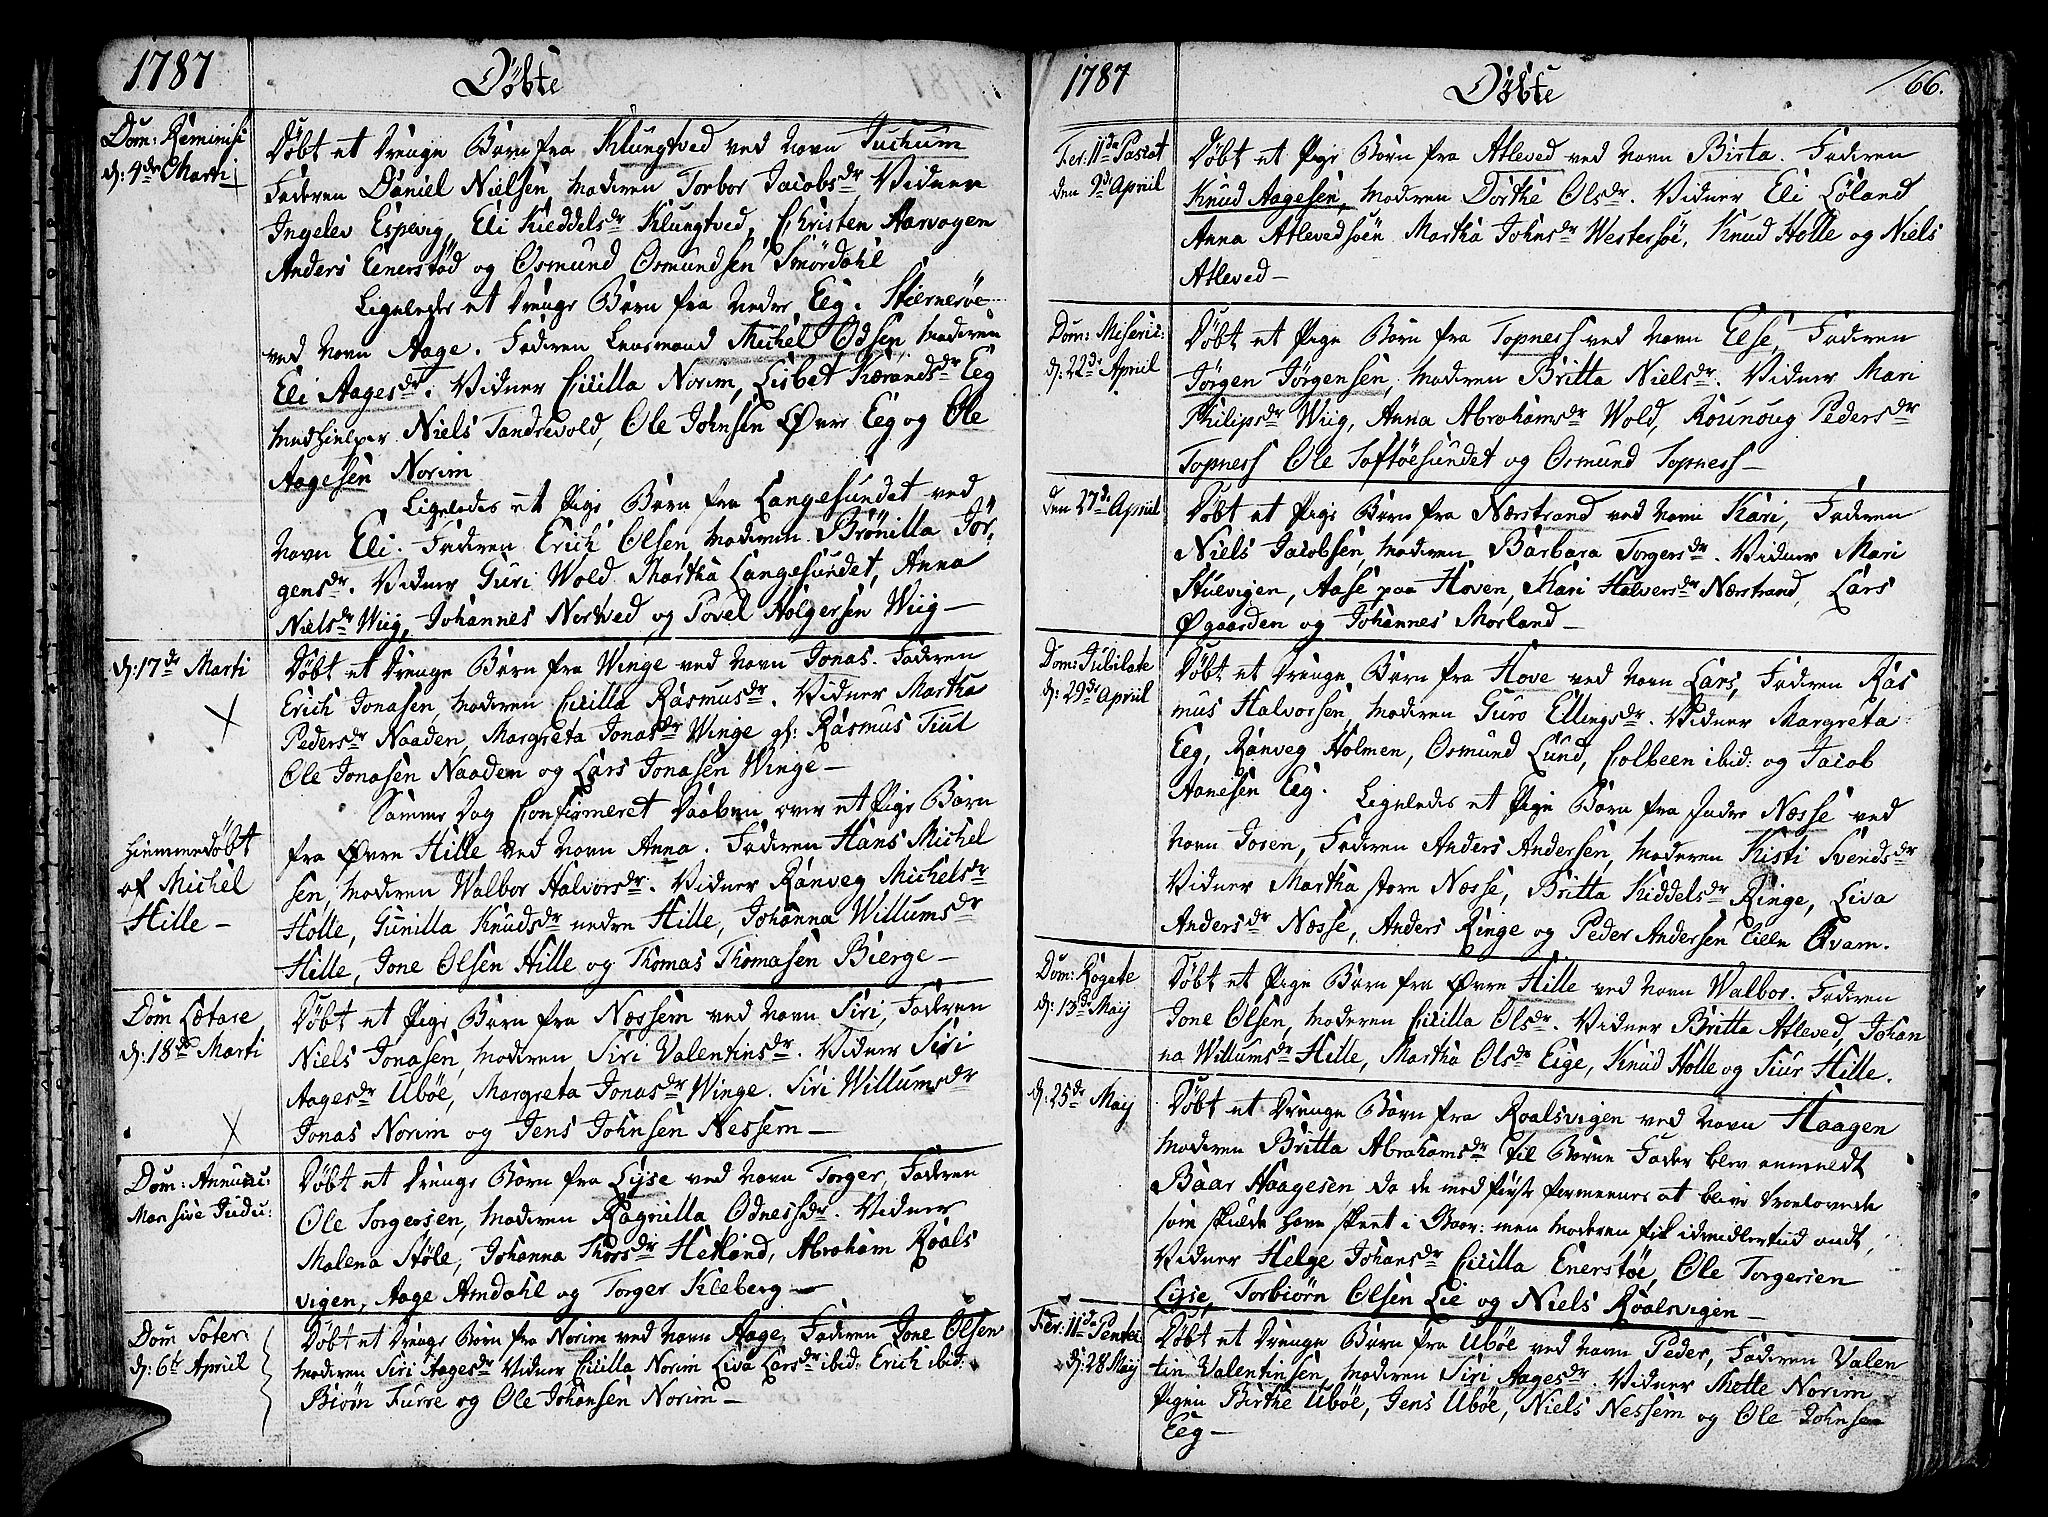 1787
Döbte
Dom: Reminisi
d: 4de Marti
Döbt et Drenge Barn fra Klungtved ved Navn Juchum
Faderen Daniel Nielsen, Moderen Torbor Jacobsdr Vidner
Ingelev Espevig, Eli Kieddelsdr Klungtved, Christen Aarvogen
Anders Eenerstød og Osmund Osmundsen Smördahl
Ligeledes et Drenge Barn fra nedre Eeg. Stiernerøe
ved Navn Aage. Faderen Lensmand Michel Odsen, Moderen
Eli Aagesdr. Vidner Cicilla Norim, Lisbet Eeg
Medhielper Niels Tandrevold, Ole Johnsen Øvre Eeg og Ole
Aagesen Norim
Ligeledes et Pige Barn fra Langesundet ved
Navn Eli. Faderen Erich Olsen, Moderen Brönilla Jör,
gensdr. Vidner Guri Wold Martha Langesundet, Anna
Nielsdr Wiig, Johannes Nortved og Povel Holgersen Wiig—
d: 17de Marti
Döbt et Drenge Barn fra Winge ved Navn Jonas. Faderen
Erich Jonasen, Moderen Cicilla Rasmusdr. Vidner Martha
Pedersdr Naaden, Margreta Jonasdr Winge gl: Rasmus Tiul
Ole Jonasen Naaden og Lars Jonasen Winge—
Samme Dag Confirmeret Daaben over et Pige Barn
hiemmedöbt
fra Øvre Hille ved Navn Anna. Faderen Hans Michel
af Michel
sen, Moderen Walbor Halvorsdr. Vidner Ranveg Michelsdr
Hille—
Holle, Gunilla Knudsdr nedre Hille, Johanna Willumsdr
Hille, Jone Olsen Hille og Thomas Thomasen Bierge—
Dom Lætare
d: 18de Marti
Döbt et Pige Barn fra Nessem ved Navn Siri, Faderen
Niels Jonasen, Moderen Siri Valentinsdr. Vidner Siri
Aagesdr Uböe, Margreta Jonasdr Winge. Siri Willumsdr
Jonas Norim og Jens Johnsen Nessem—
Dom: Annunci:
Mariæ sive Judic:
Döbt et Drenge Barn fra Lyse ved Navn Torger, Faderen
Ole Torgersen, Moderen Ragnilla Odnessdr. Vidner
Malena Stöle, Johanna Thorsdr Hetland, Abraham Roals
vigen, Aage Amdahl og Torger Kleberg—
Dom Soter
d: 6te April
Döbt et Drenge Barn fra Norim ved Navn Aage, Faderen Jone Olsen
Moderen Siri Aagesdr Vidner Cicilla Norim Liva Larsdr ibid: Erich ibid:
Biörn Furre og Ole Johansen Norim—
1787
Döbte
66.
Fer: IIda Pascat
den 9de April
Döbt et Pige Barn fra Atleved ved Navn Birta. Faderen
Knud Aagesen, Moderen Dorthe Olsdr. Vidner Eli Löland
Anna Atlevedsöen Martha Johnsdr Westersöe, Knud Holle og Niels
Atleved—
Dom: Miseric:
d: 22de April
Döbt et Pige Barn fra Topness ved Navn Else, Faderen
Jörgen Jörgensen, Moderen Britta Nielsdr. Vidner Mari
Philipsdr Wiig, Anna Abrahamsdr Wold, Rounoug Pedersdr
Topness Ole Toftöesundet og Osmund Topness—
den 27de April
Döbt et Pige Barn fra Nerstrand ved Navn Kari, Faderen
Niels Jacobsen, Moderen Barbara Torgersdr. Vidner Mari
Stuevigen, Aase paa Hoven, Kari Halversdr Nærstrand, Lars
Øgaarden og Johannes Morland—
Dom: Jubilate
d: 29de April
Döbt et Drenge Barn fra Hove ved Navn Lars, Faderen Ras
mus Halvorsen, Moderen Guro Ellingsdr. Vidner Margreta
Eeg, Ranveg Holmen, Osmund Lund, Colbeen ibid: og Jacob
Aanesen Eeg. Ligeledes et Pige Barn fra Indre Næsse ved
Navn Josen, Faderen Anders Andersen, Moderen Kisti Svendsdr
Vidner Martha store Næsse, Britta Kiddelsdr Ringe, Liva
Andersdr Næsse, Anders Ringe og Peder Andersen lille Qvam.
Dom: Rogate
d: 13de Maij
Döbt et Pige Barn fra Øvre Hille ved Navn Walbor. Faderen
Jone Olsen, Moderen Cicilla Olsdr. Vidner Britta Atleved, Johan
na Willumsdr Hille, Martha Olsdr Eige, Knud Holle og Siur Hille.
d: 25de Maij
Döbt et Drenge Barn fra Roalsvigen ved Navn Haagen
Moderen Britta Abrahamsdr til Barne Fader blev anmeldt
Baar Haagesen, da de med föiste fornemmes at blive trolovede
som skulde have skeet i Gaar: men Moderen fik imidlertiid ondt,
Vidner Helge Johansdr Cicilla Enerstöe, Ole Torgersen
Lyse, Torbiörn Olsen Lie og Niels Roalsvigen—
Fer: IIda Pentec
d: 28 Maij
Döbt et Drenge Barn fra Uböe ved Navn Peder, Faderen Valen
tin Valentinsen, Moderen Siri Aagesdr. Vidner Mette Norim
Pigen Birthe Uböe, Jens Uböe, Niels Nessem og Ole Johnsen
Eeg—